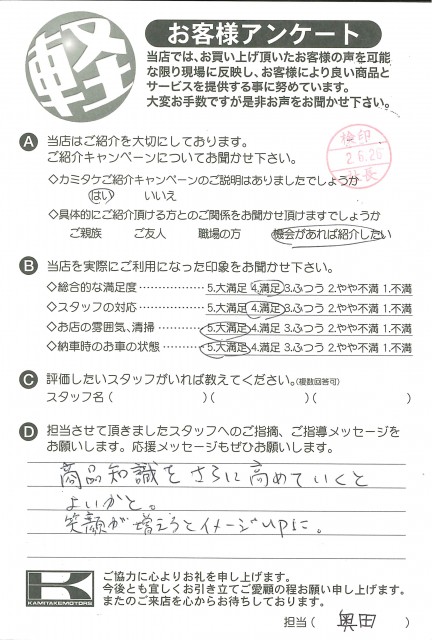 軽
お客様アンケート
当店では、お買い上げ頂いたお客様の声を可能
な限り現場に反映し、お客様により良い商品と
サービスを提供する事に努めています。
大変お手数ですが是非お声をお聞かせ下さい。
A 当店はご紹介を大切にしております。
ご紹介キャンペーンについてお聞かせ下さい。
検印
2.6.26
◇カミタケご紹介キャンペーンのご説明はありましたでしょうか
はい いいえ
◇具体的にご紹介頂ける方とのご関係をお聞かせ頂けますでしょうか
ご親族 ご友人 職場の方 機会があれば紹介したい
B 当店を実際にご利用になった印象をお聞かせ下さい。
◇総合的な満足度……………… 5.大満足 4.満足 3.ふつう 2.やや不満 1.不満
◇スタッフの対応……………… 5.大満足 4.満足 3.ふつう 2.やや不満 1.不満
◇お店の雰囲気、清掃………… 5.大満足 4.満足 3.ふつう 2.やや不満 1.不満
◇納車時のお車の状態………… 5.大満足 4.満足 3.ふつう 2.やや不満 1.不満
C 評価したいスタッフがいれば教えてください。(複数回答可)
スタッフ名( )( )( )
D 担当させて頂きましたスタッフへのご指摘、ご指導メッセージを
お願いします。応援メッセージもぜひお願いします。
商品知識をさらに高めていくと
よいかと。
笑顔が増えるとイメージupに。
KAMITAKEMOTORS
ご協力に心よりお礼を申し上げます。
今後とも宜しくお引き立てご愛顧の程お願い申し上げます。
またのご来店を心からお待ちしております。
担当( 奥田 )